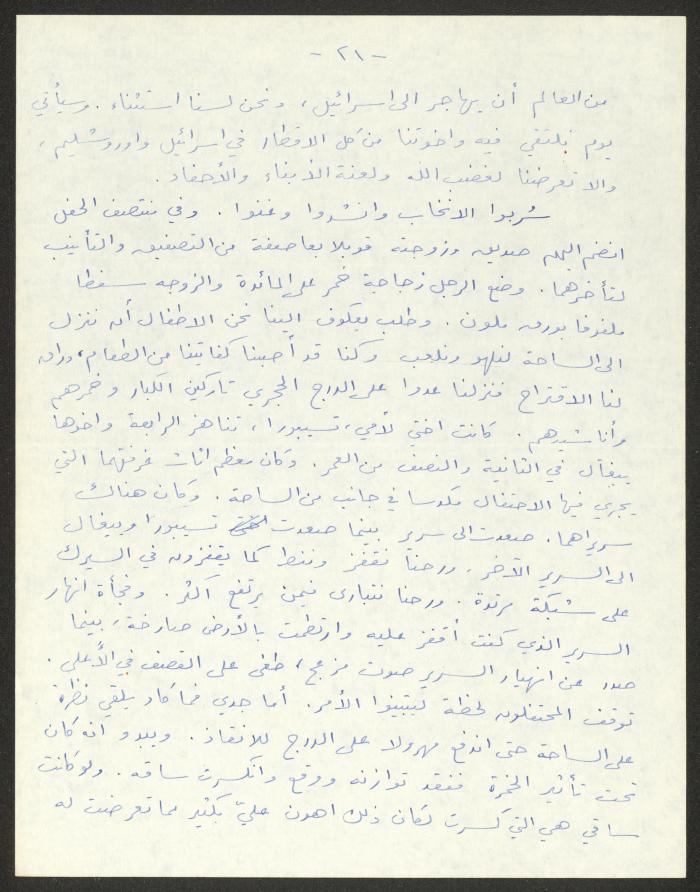 - ٢١ -
من العالم أن يهاجر الى اسرائيل، ونحن لسنا استثناء. وسيأتي
يوم نلتقي فيه واخوتنا من كل الاقطار في اسرائيل واوروشليم،
والا تعرضنا لغضب الله ولعنة الأبناء والأحفاد.
شربوا الانخاب وانشدوا وغنوا. وفي منتصف الحفل
انضم اليهم صديق وزوجته قوبلا بعاصفة من التصفيق والتأنيب
لتأخرهما. وضع الرجل زجاجة خمر على المائدة والزوجه سفطا
ملفوفا بورق ملون. وطلب يعكوف الينا نحن الاطفال أن ننزل
الى الساحة لنلهو ونلعب وكنا قد أصبنا كفايتنا من الطعام، وراق
لنا الاقتراح فنزلنا عدوا على الدرج الحجري تاركين الكبار وخمرهم
وأناشيدهم. كانت اختي لأمي، تسيبورا، تناهز الرابعة واخوها
ييغآل في الثانية والنصف من العمر. وكان معظم اثاث غرفتهما التي
يجري فيها الاحتفال مكدسا في جانب من الساحة. وكان هناك
سريراهما. صعدت الى سرير بينما صعدت تسيبورا وييغال
الى السرير الآخر، ورحنا نقفز وننط كما يقفزون في السيرك
على شبكة مرتدة. ورحنا نتبارى فيمن يرتفع اكثر. وفجأة انهار
السرير الذي كنت أقفز عليه وارتطمت بالأرض صارخة، بينما
صدر عن انهيار السرير صوت مزعج، طغى على القصف في الأعلى.
توقف المحتفلون لحظة ليتبينوا الأمر. أما جدي فما كاد يلقي نظرة
على الساحة حتى اندفع مهرولا على الدرج للانقاذ. ويبدو انه كان
تحت تأثير الخمرة ففقد توازنه ووقع وانكسرت ساقه. ولو كانت
ساقي هي التي كسرت لكان ذلك اهون عليّ بكثير مما تعرضت له